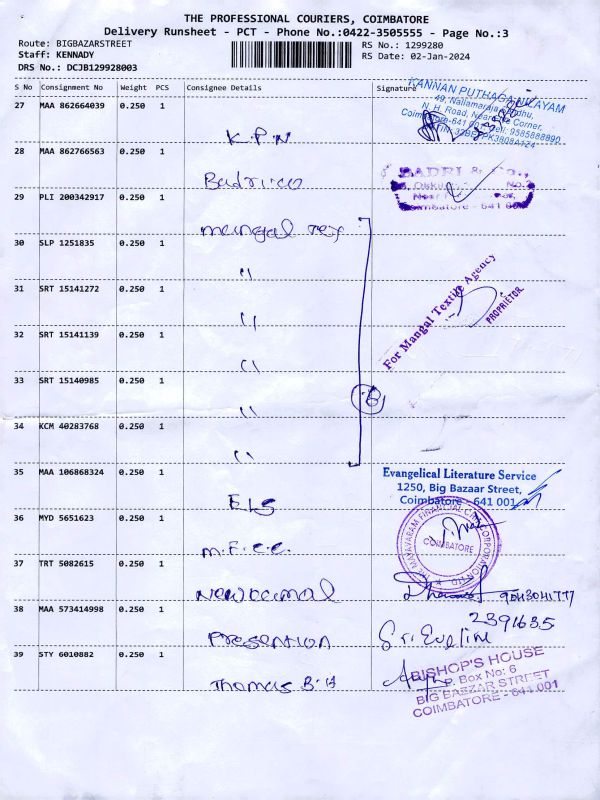 THE PROFESSIONAL COURIERS, COIMBATORE
Delivery Runsheet - PCT - Phone No.:0422-3505555 - Page No.:3
Route: BIGBAZARSTREET
Staff: KENNADY
DRS No.: DCJB129928003
RS No.: 1299280
RS Date: 02-Jan-2024
S No Consignment No Weight PCS Consignee Details Signature
27 MAA 862664039 0.250 1
K.P.N
KANNAN PUTHAGA NILAYAM
28 MAA 862766563 0.250 1
Badri.co
BADRI & Co.,
Coimbatore - 641 001
29 PLI 200342917 0.250 1
mangal Tex
30 SLP 1251835 0.250 1
"
31 SRT 15141272 0.250 1
"
For Mangal Textile Agency
PROPRIETOR
32 SRT 15141139 0.250 1
"
33 SRT 15140985 0.250 1
"
6
34 KCM 40283768 0.250 1
"
35 MAA 106868324 0.250 1
ELS
Evangelical Literature Service
1250, Big Bazaar Street,
Coimbatore - 641 001
36 MYD 5651623 0.250 1
M.F.C.C.
COIMBATORE
37 TRT 5082615 0.250 1
New Kamal
38 MAA 573414998 0.250 1
Presention
2391635
Sr. Eveline
39 STY 6010882 0.250 1
Thomas B.H
BISHOP'S HOUSE
P. Box No: 6
BIG BAZZAR STREET
COIMBATORE - 641 001